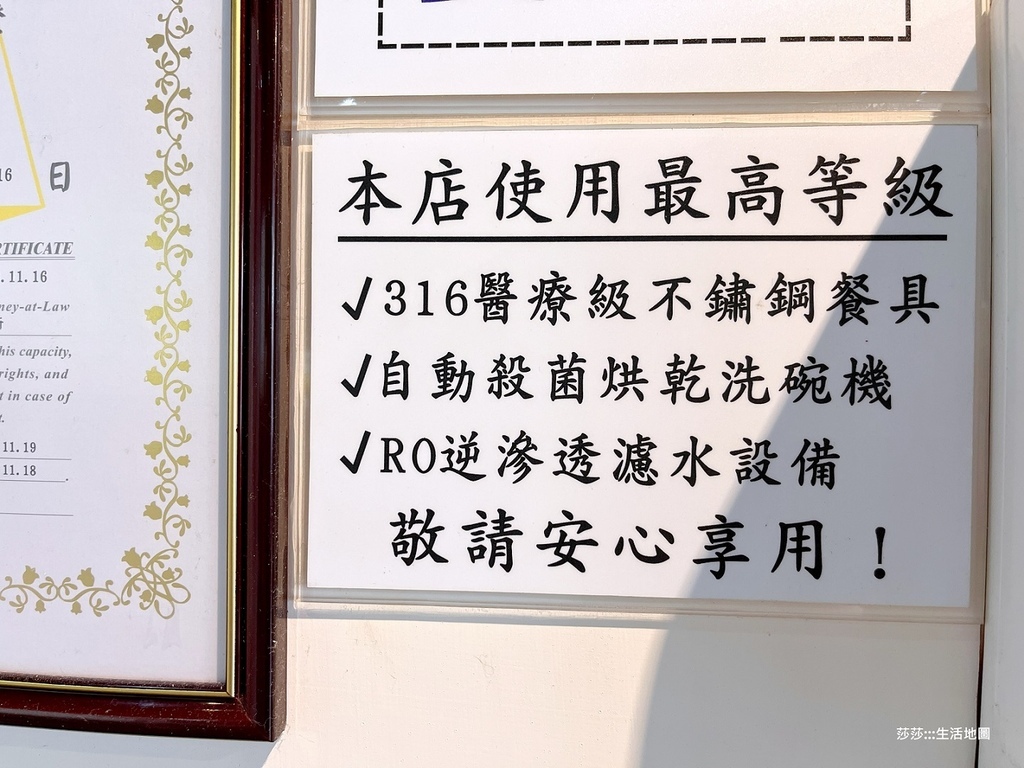 16 日
RTIFICATE
.11.16
ney-at-Law
his capacity,
rights, and
t in case of
11.19
11.18
本店使用最高等級
✓316醫療級不鏽鋼餐具
✓自動殺菌烘乾洗碗機
✓RO逆滲透濾水設備
敬請安心享用！
莎莎:::生活地圖